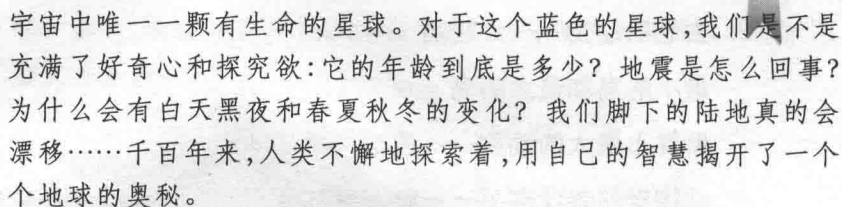 宇宙中唯一一颗有生命的星球。对于这个蓝色的星球,我们是不是
充满了好奇心和探究欲:它的年龄到底是多少? 地震是怎么回事?
为什么会有白天黑夜和春夏秋冬的变化? 我们脚下的陆地真的会
漂移……千百年来,人类不懈地探索着,用自己的智慧揭开了一个
个地球的奥秘。